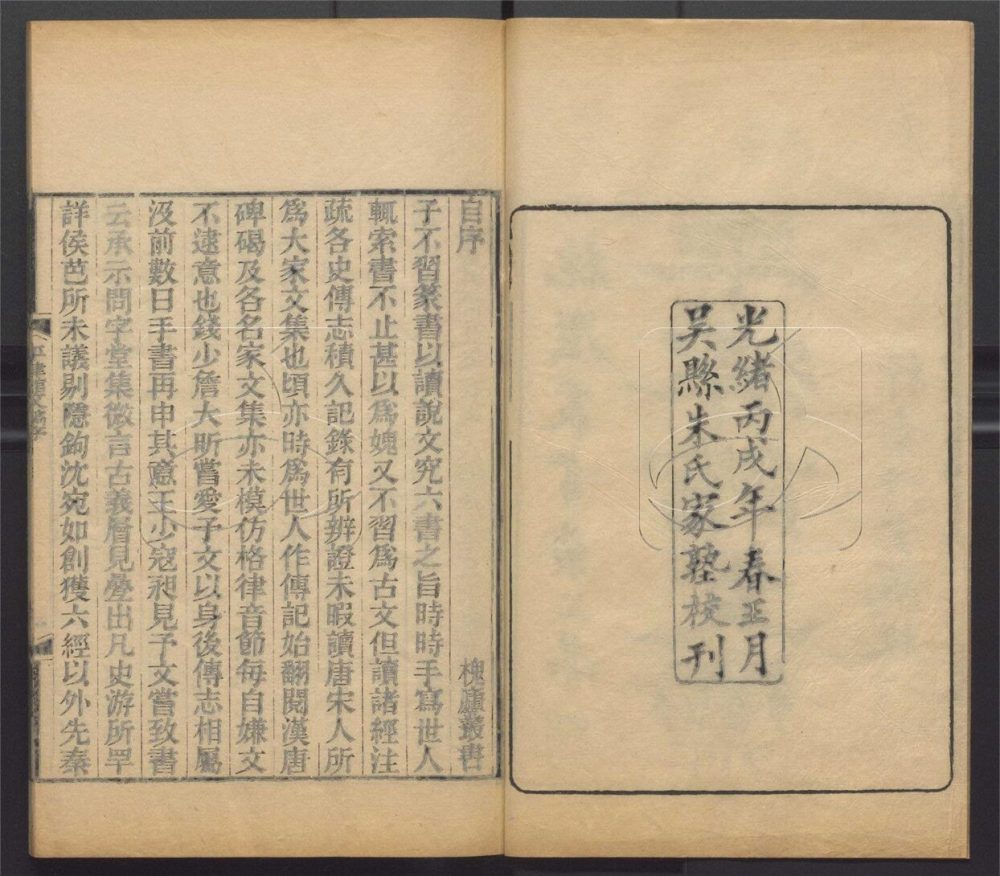 光緒丙戌年春正月
吴縣朱氏家塾校刊
自序
槐廬叢書
予不習篆書以讀說文究六書之旨時時手寫世人
輒索書不止甚以爲媿又不習爲古文但讀諸經注
疏各史傳志積久記錄有所辨證未暇讀唐宋人所
爲大家文集也頃亦時爲世人作傳記始翻閱漢唐
碑碣及各名家文集亦未模仿格律音節每自嫌文
不逮意也錢少詹大昕嘗愛予文以身後傳志相屬
沒前數日手書再申其意王少寇昶見予文嘗致書
云承示問字堂集微言古義層見疊出凡史游所罕
詳侯芭所未議剔隱鉤沈宛如創獲六經以外先秦